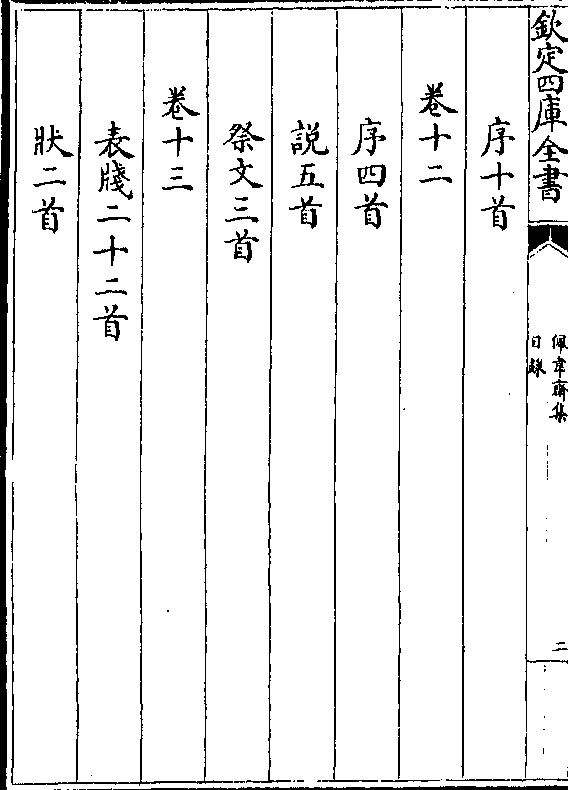 欽定四庫全書
佩韋齋集
目錄
二
序十首
卷十二
序四首
説五首
祭文三首
卷十三
表牋二十二首
狀二首